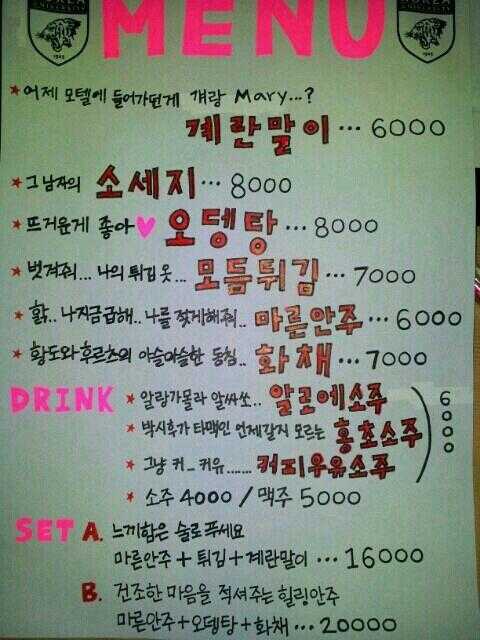 MENU
★ 어제 모텔에 들어가던게 걔랑 Mary...?
계란말이 ... 6000
★ 그 남자의 소세지 ... 8000
★ 뜨거운게 좋아♥ 오뎅탕 ... 8000
★ 벗겨줘... 나의 튀김옷... 모듬튀김 ... 7000
★ 핡.. 나지금급해.. 나를 젖게해줘.. 마른안주 ... 6000
★ 황도와후르츠의 아슬아슬한 동침.. 화채 ... 7000
DRINK ★ 알랑가몰라 알싸쏘.. 알로에소주
★ 박시후가 타맥인 언제갈지 모르는 홍초소주
★ 그냥 커_커유...... 커피우유소주
6000
★ 소주 4000 / 맥주 5000
SET A. 느끼함은 술로푸세요
마른안주 + 튀김 + 계란말이 ... 16000
B. 건조한 마음을 적셔주는 힐링안주
마른안주 + 오뎅탕 + 화채 ... 20000